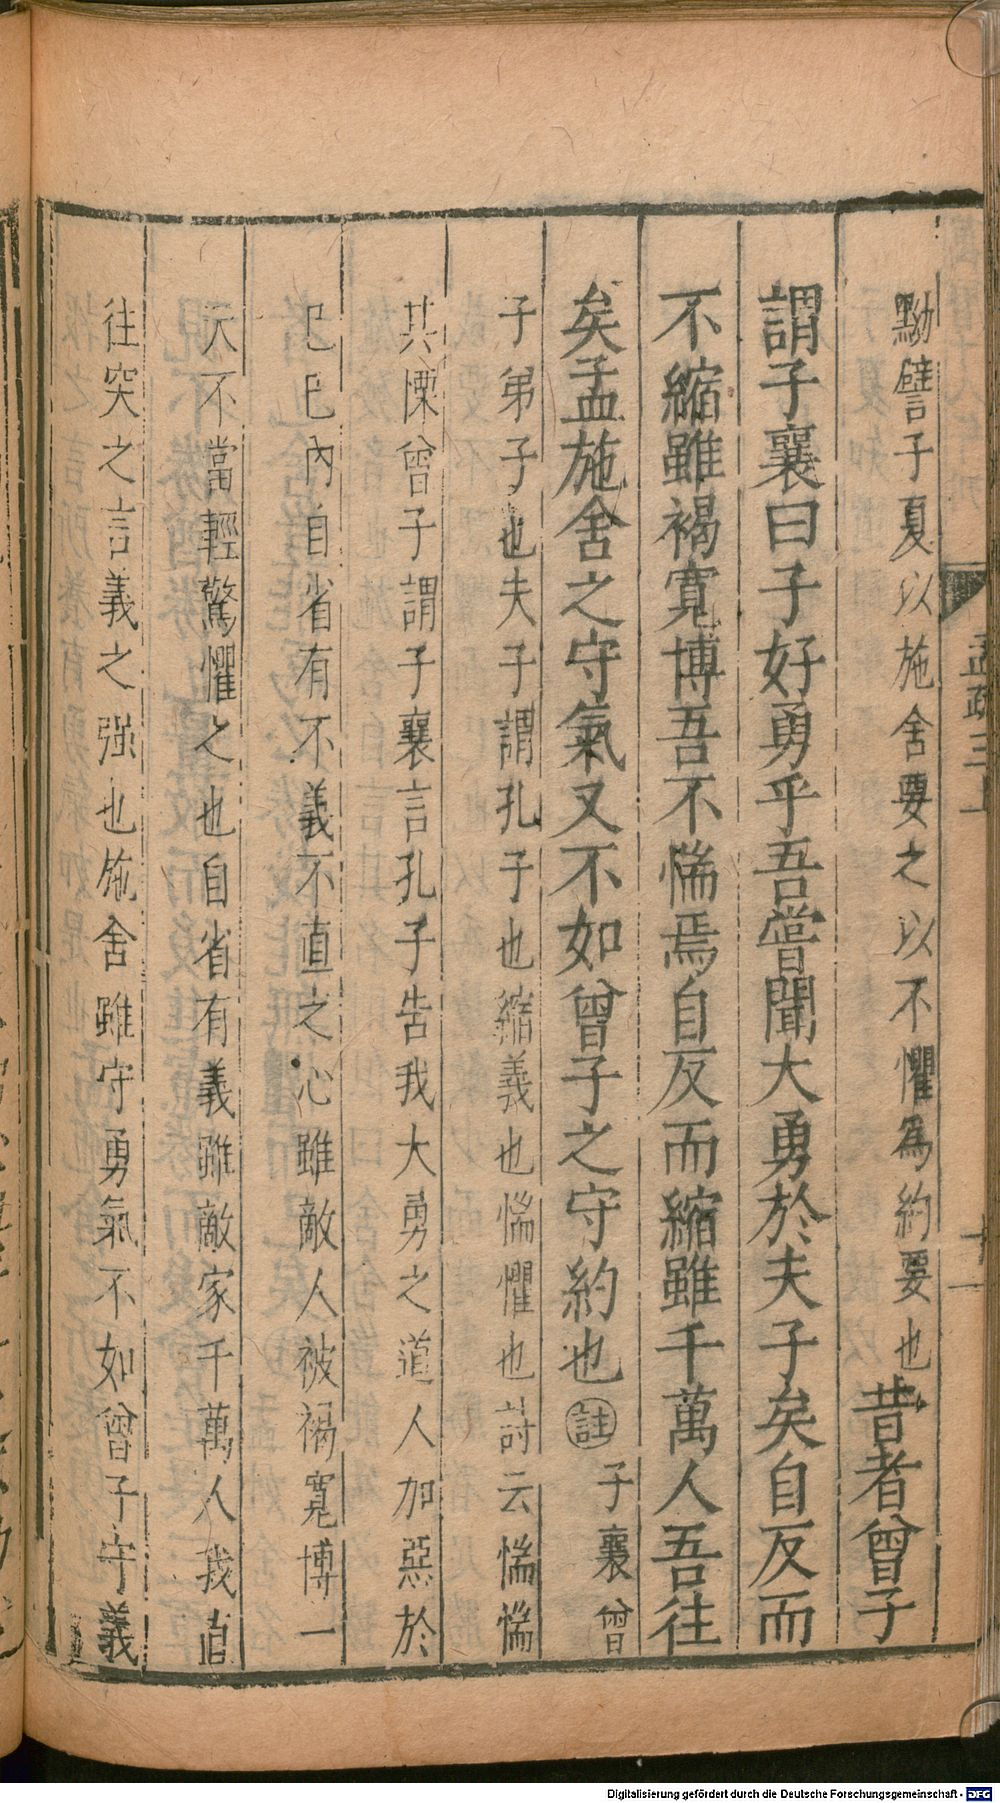 黝譬子夏以施舍要之以不懼為約要也昔者曾子
謂子襄曰子好勇乎吾嘗聞大勇於夫子矣自反而
不縮雖褐寬博吾不惴焉自反而縮雖千萬人吾往
矣孟施舍之守氣又不如曾子之守約也註子襄曾
子弟子也夫子謂孔子也縮義也惴懼也詩云惴惴
其慄曾子謂子襄言孔子告我大勇之道人加惡於
已已內自省有不義不直之心雖敵人被褐寬博一
夫不當輕驚懼之也自省有義雖敵家千萬人我直
往突之言義之強也施舍雖守勇氣不如曾子守義
孟疏三上
十一
Digitalisierung gefördert durch die Deutsche Forschungsgemeinschaft - DFG